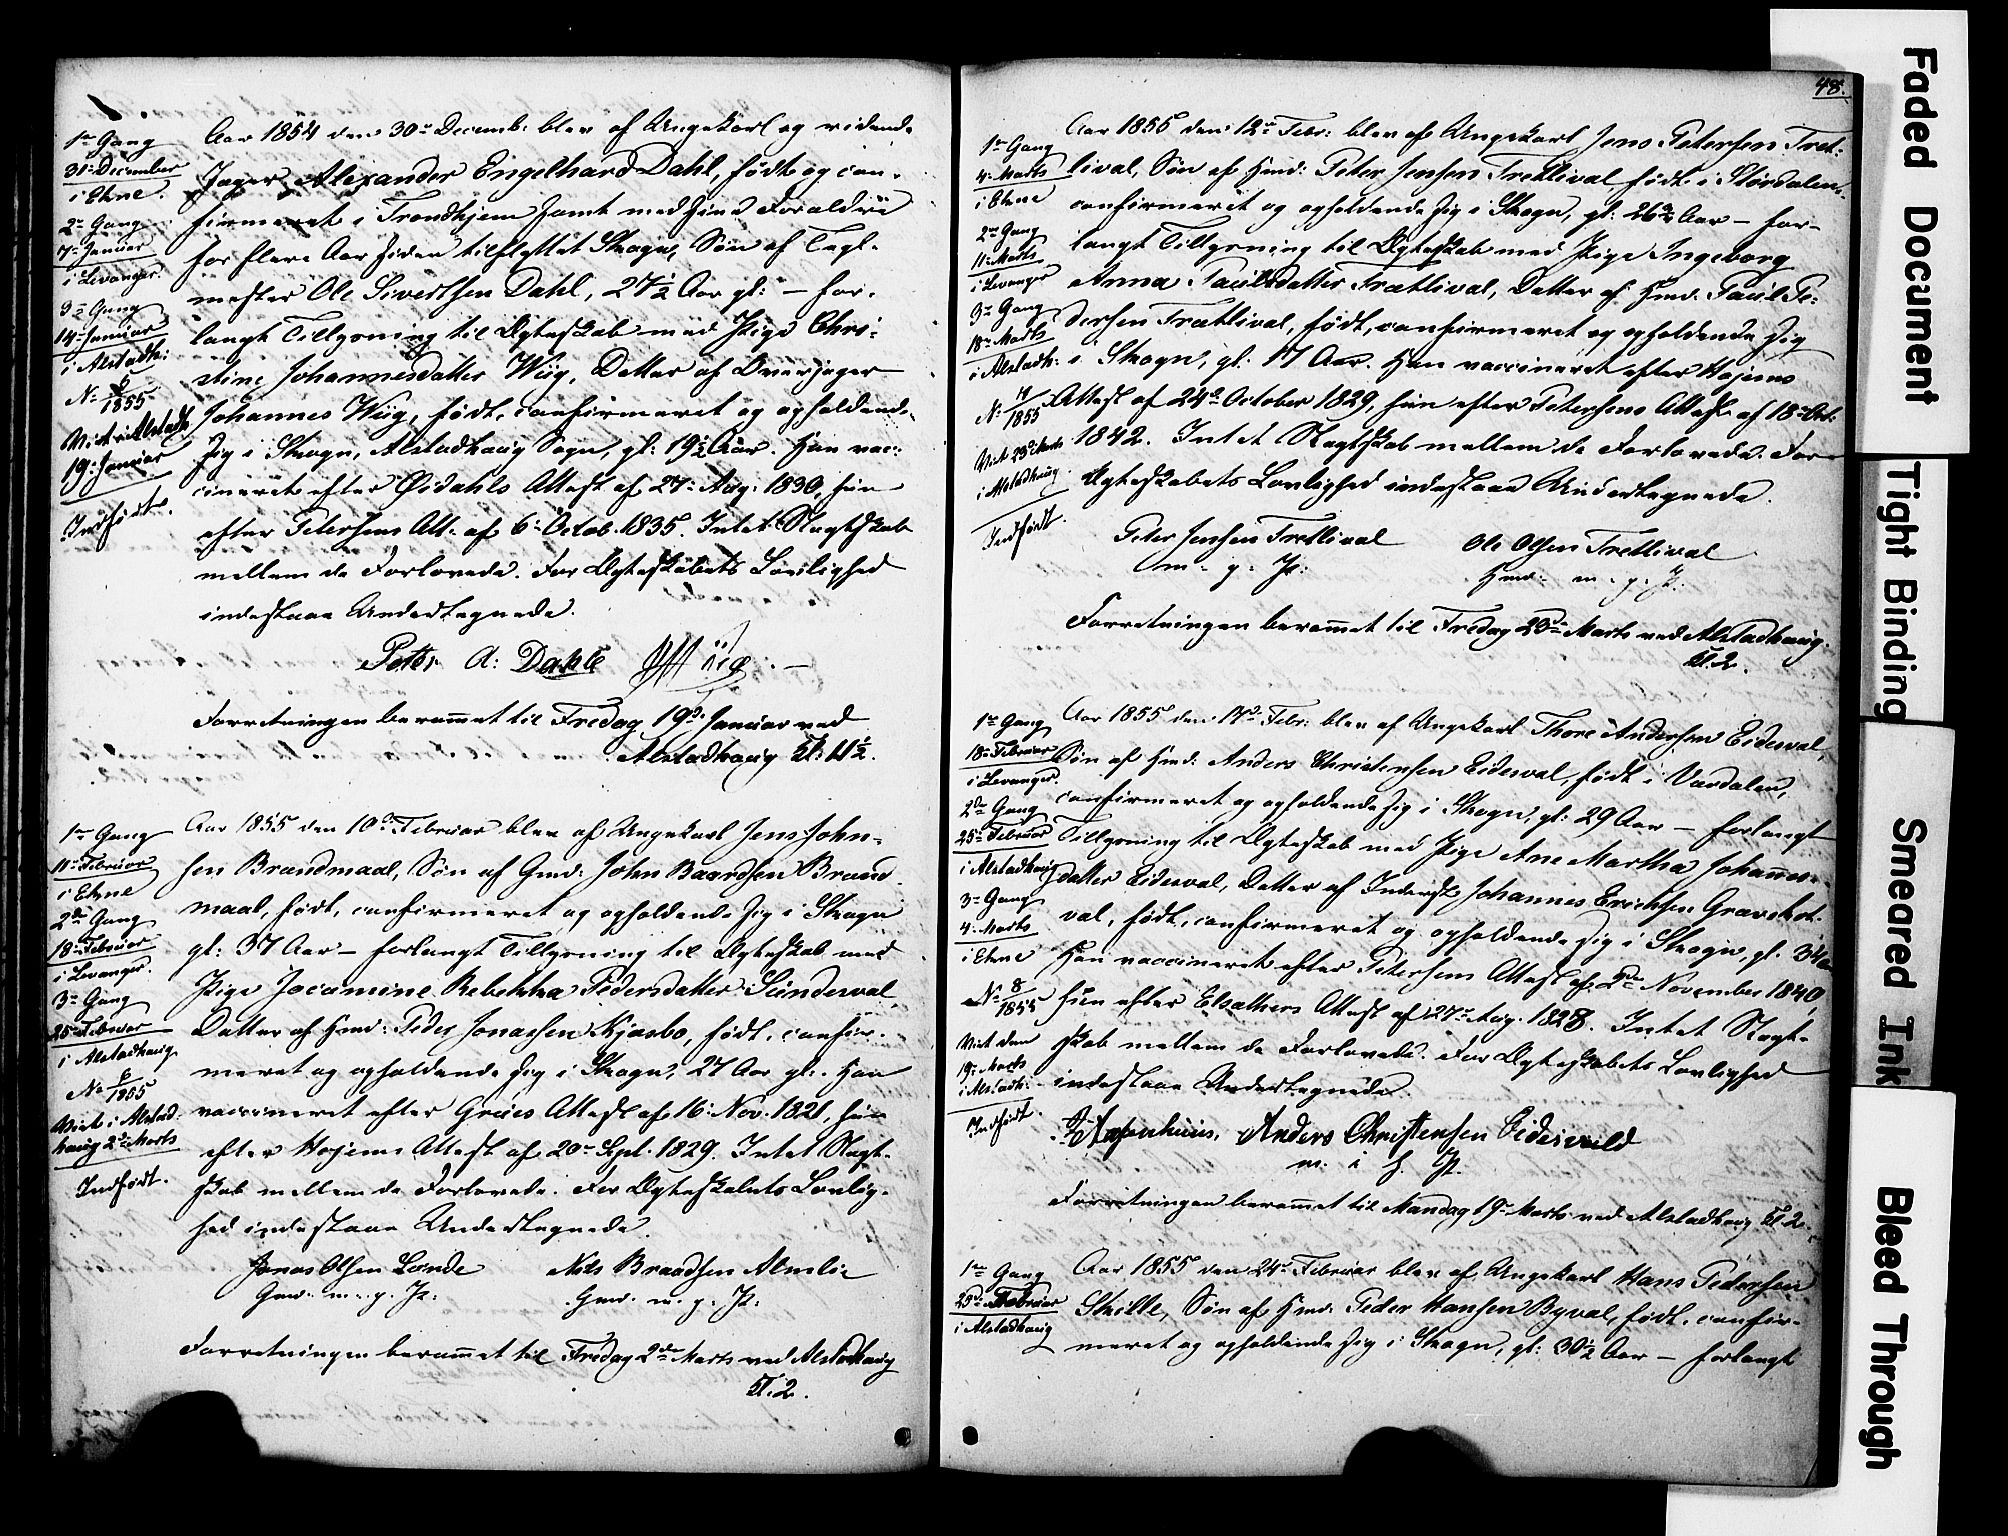 1ste Gang
31te December
i Ekne.
2den Gang
7de Januar
i Levanger.
3die Gang
14de Januar
i Alstadh:
No 6/1855
Viet i Alstadh.
19de Januar
Indført.
Aar 1854 den 30te Decemb: blev af Ungekarl og ridende
Jæger Alexander Engelhard Dahl, født og con-
firmeret i Trondhjem samt med sine Forældre
for flere Aar siden tilflyttet Skogn, Søn af Tegl-
mester Ole Sivertsen Dahl, 27½ Aar gl: – for-
langt Tillysning til Ægteskab med Pige Chri-
stine Johannesdatter Wiig, Datter af Overjæger
Johannes Wiig, født, confirmeret og opholdende
sig i Skogn, Alstadhaug Sogn, gl: 19½ Aar. Han vac-
cineret efter Øidahls Attest af 27de Aug: 1830, hun
efter Petersens Att: af 6te Octob. 1835. Intet Slægtskab
mellem de Forlovede. For Ægteskabets Lovlighed
indestaae Undertegnede.
Petter A: Dahle
Forretningen berammet til Fredag 19de Januar ved
Alstadhaug Kl. 11½.
1ste Gang
11te Februar
i Ekne
2den Gang
18de Februar
i Levanger.
3die Gang
25de Februar
i Alstadhaug
No 6/1855
Viet i Alstad-
haug 2den Marts
Indført.
Aar 1855 den 10de Februar blev af Ungekarl Jens John-
sen Brandmaal, Søn af Gmd: John Baardsen Brand-
maal, født, confirmeret og opholdende sig i Skogn
gl: 37 Aar – forlangt Tillysning til Ægteskab med
Pige Jacomine Rebekka Pedersdatter Sundesval,
Datter af Hmd: Peder Jonassen Kjæsbo, født, confir-
meret og opholdende sig i Skogn, 27 Aar gl. Han
vaccineret efter Grøes Attest af 16de Nov. 1821, hun
efter Højems Attest af 20de Sept. 1829. Intet Slægt-
skab mellem de Forlovede. For Ægteskabets Lovlig-
hed indestaae Undertegnede.
Jonas Olsen Lunde Nils Braadsen Almlie
Gmd. m. p. P: Gmd. m. p. P:
Forretningen berammet til Fredag 2den Marts ved Alstadhaug
Kl. 2.
48.
1ste Gang
4de Marts
i Ekne
2den Gang
11te Marts
i Levanger
3die Gang
18de Marts
i Alstadh:
No 7/1855
Viet 23de Marts
i Alstadhaug.
Indført.
Aar 1855 den 12te Febr: blev af Ungekarl Jens Petersen Tret-
lival, Søn af Hmd: Peter Jensen Tretlival, født i Størdalen,
confirmeret og opholdende sig i Skogn, gl: 26 Aar – for-
langt Tillysning til Ægteskab med Pige Ingeborg
Anna Paulsdatter Trætlival, Datter af Hmd. Paul Pe-
dersen Trætlival, født, confirmeret og opholdende sig
i Skogn, gl. 17 Aar. Han vaccineret efter Højems
Attest af 24de October 1829, hun efter Petersens Attest af 18de Oct.
1842. Intet Slægtskab mellem de Forlovede. For
Ægteskabets Lovlighed indestaae Undertegnede.
Peter Jensen Tretlival Ole Olsen Tretlival
m. p. P: Hmd. m. p. P.
Forretningen berammet til Fredag 23de Marts ved Alstadhaug.
Kl. 2.
1ste Gang
18de Februar
i Levanger.
2den Gang
25de Februar
i Alstadhaug
3die Gang
4de Marts
i Ekne
No 8/1855
Viet den
19de Marts
i Alstadh:
Indført.
Aar 1855 den 17de Febr: blev af Ungekarl Thore Andersen Eidesval,
Søn af Hmd: Anders Christensen Eidesval, født i Værdalen,
confirmeret og opholdende sig i Skogn, gl: 29 Aar – forlangt
Tillysning til Ægteskab med Pige Ane Martha Johannes-
datter Eidesval, Datter af Inderst Johannes Erichsen Gravskot-
val, født, confirmeret og opholdende sig i Skogn, gl. 34
Han vaccineret efter Petersens Attest af 2den November 1840,
hun efter Elsathers Attest af 27de Aug. 1828. Intet Slægt-
skab mellem de Forlovede. For Ægteskabets Lovlighed
indestaae Undertegnede.
Anders Christensen Eidesvald
m. i h. P.
Forretningen berammet til Mandag 19de Marts ved Alstadhaug Kl. 2.
1ste Gang
25de Februar
i Alstadhaug
Aar 1855 den 24de Februar blev af Ungekarl Hans Pedersen
Skille, Søn af Hmd: Peder Hansen Byval, født, confir-
meret og opholdende sig i Skogn, gl: 30½ Aar – forlangt
Faded Document
Tight Binding
Smeared Ink
Bleed Through